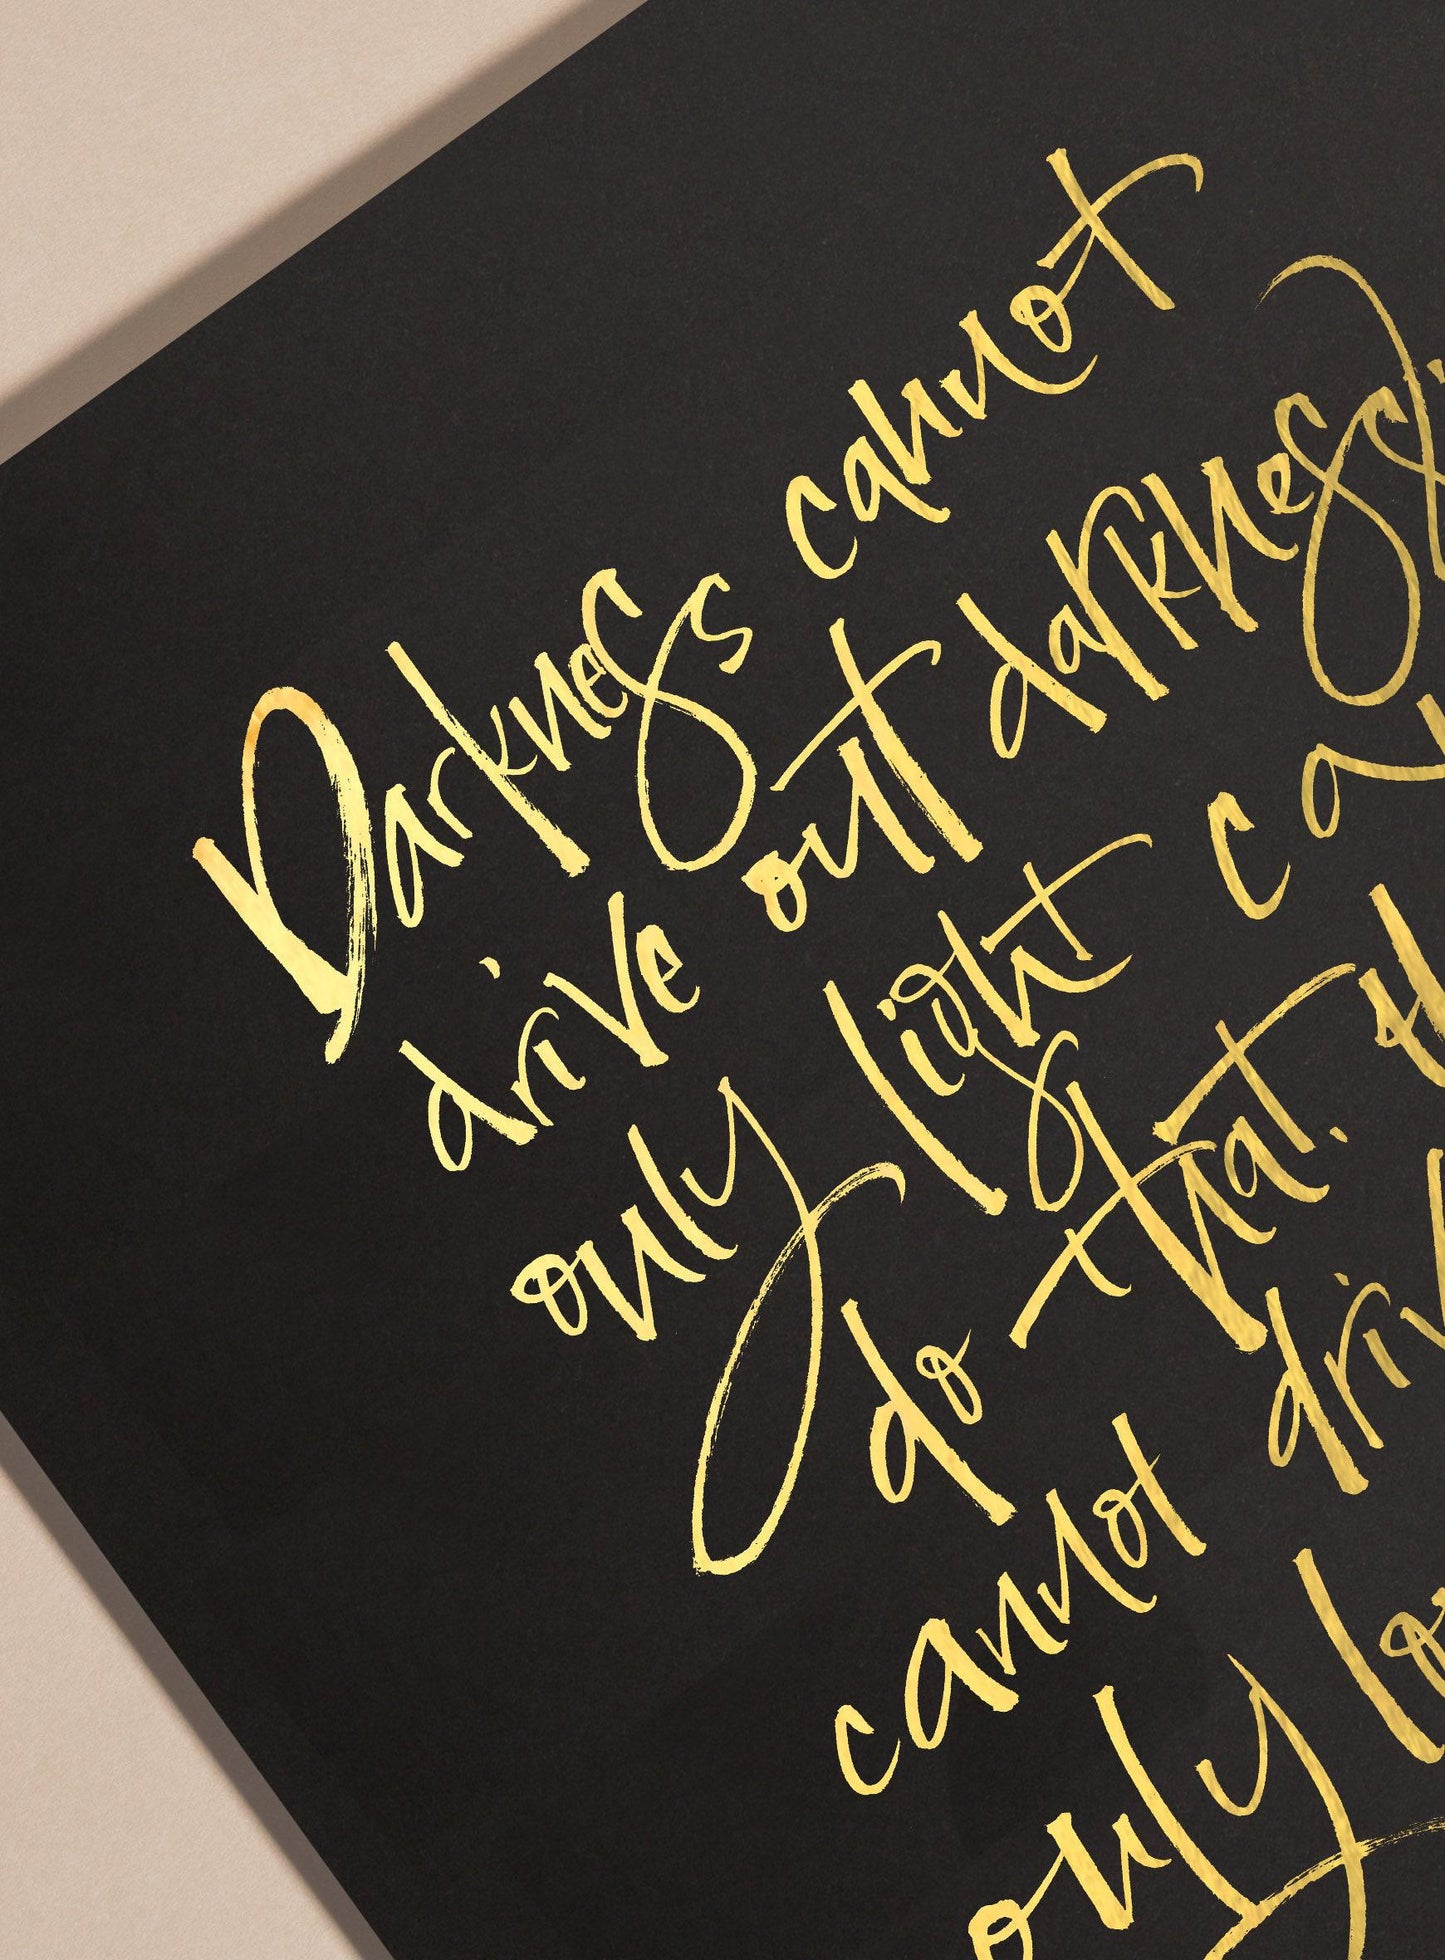 Darkness cannot
drive out darkness
only light ca
do that.
cannot driv
only lo